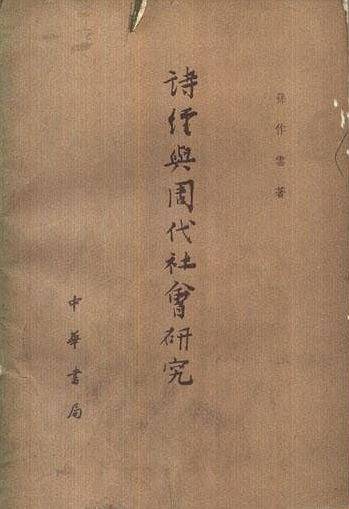 孫作雲著
詩經與周代社會研究
中華書局